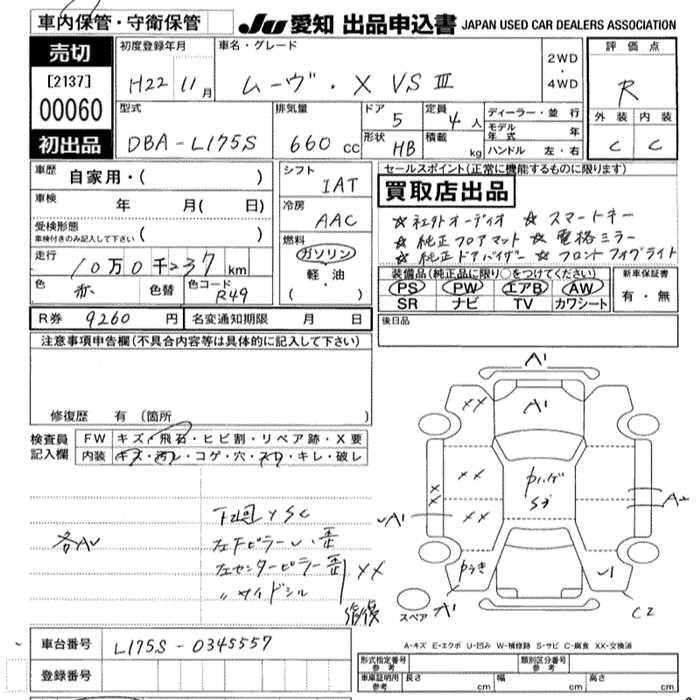 車内保管・守衛保管
JU 愛知 出品申込書 JAPAN USED CAR DEALERS ASSOCIATION
売切
[2137]
00060
初出品
初度登録年月
H22 11月
車名・グレード
ムーヴ・X VS Ⅲ
2WD
・
4WD
評価点
R
外装 内装
C C
型式
DBA-L175S
排気量
660 cc
ドア
5
定員
4人
形状
HB
積載
kg
ディーラー・並行
モデル年式 年
ハンドル 左・右
車歴
自家用・( )
車検
年 月( 日)
受検形態
車検付きのみ記入して下さい ( )
走行
10万0千237km
色
赤
色替
色コード
R49
シフト
IAT
冷房
AAC
燃料
ガソリン
軽・油
( ・ )
セールスポイント(正常に機能するものに限ります)
買取店出品
☆社外オーディオ ☆スマートキー
☆純正フロアマット ☆電格ミラー
☆純正ドアバイザー ☆フロントフォグライト
装備品(純正品に限り○をつけてください)
PS PW エアB AW
SR ナビ TV カワシート
新車保証書
有・無
R券 9260円
名変通知期限 月 日
後日品
注意事項申告欄(不具合内容等は具体的に記入して下さい)
修復歴 有(箇所 )
検査員
記入欄
FW キズ・飛石・ヒビ割・リペア跡・X要
内装 キズ・汚レ・コゲ・穴・スレ・キレ・破レ
下回 サSC
左センターピラー歪
〃サイドシル
XX
修復
A1
A1
XX
XX
XX
A1
A2
A1
C2
スペア
A-キズ E-エクボ U-凹み W-補修跡 S-サビ C-腐食 XX-交換済
車台番号
L175S-0345557
登録番号
形式指定番号
参考
類別区分番号
参考
車庫証明用
参考
長さ cm
幅 cm
高さ cm